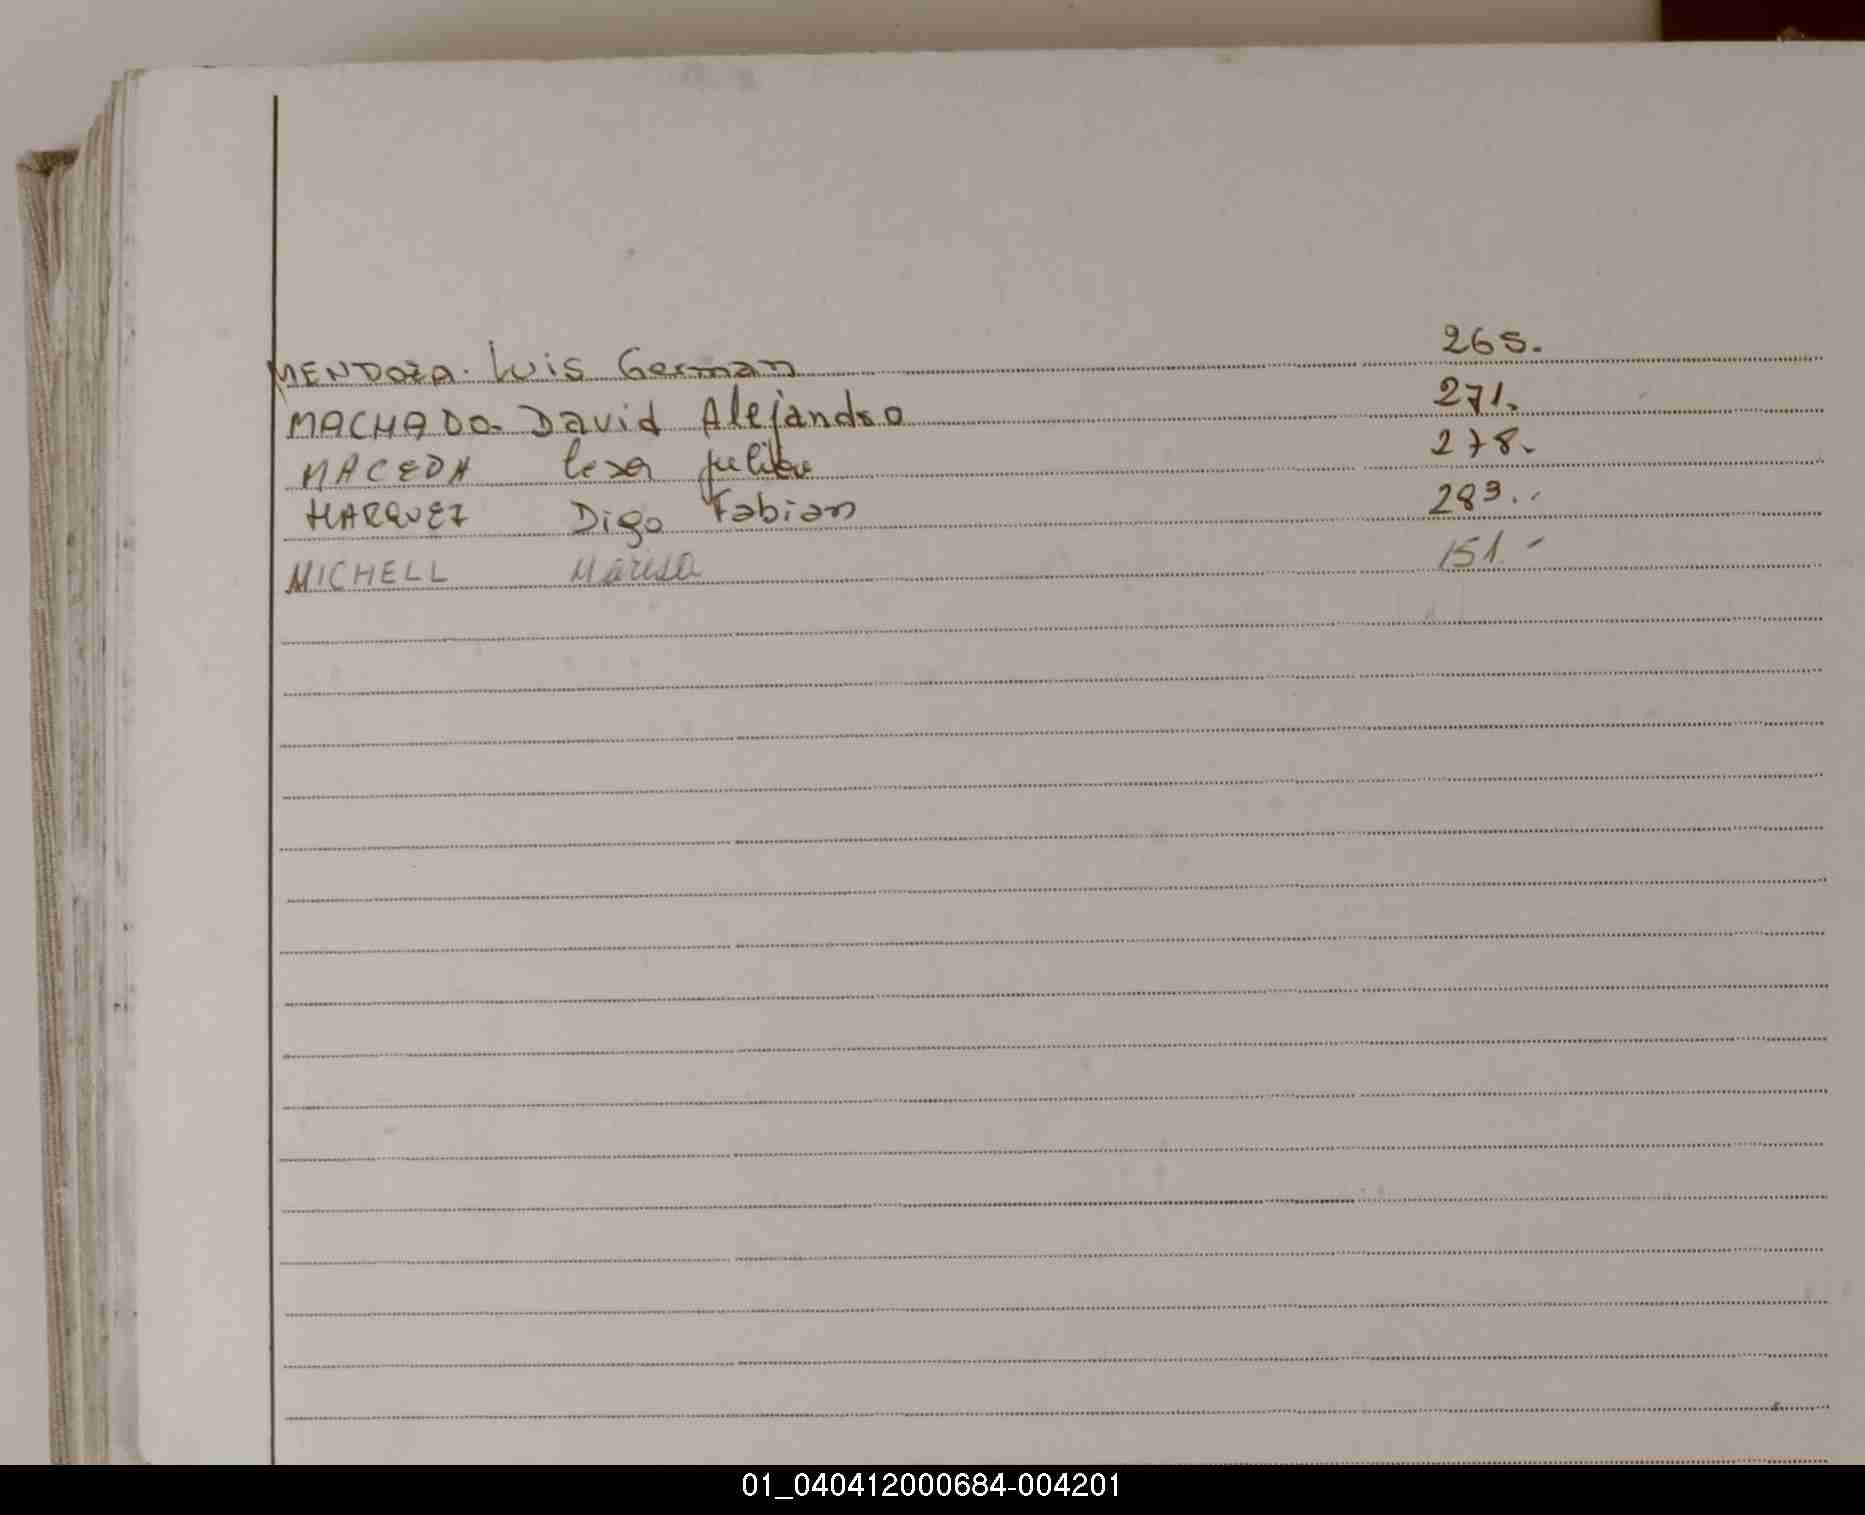 MENDOZA. Luis German 265.
MACHADO. David Alejandro 271.
MACEDA Cesar Julian 278.
MARQUEZ Digo Fabian 283.
MICHELL Marisa 151.-
01_040412000684-004201